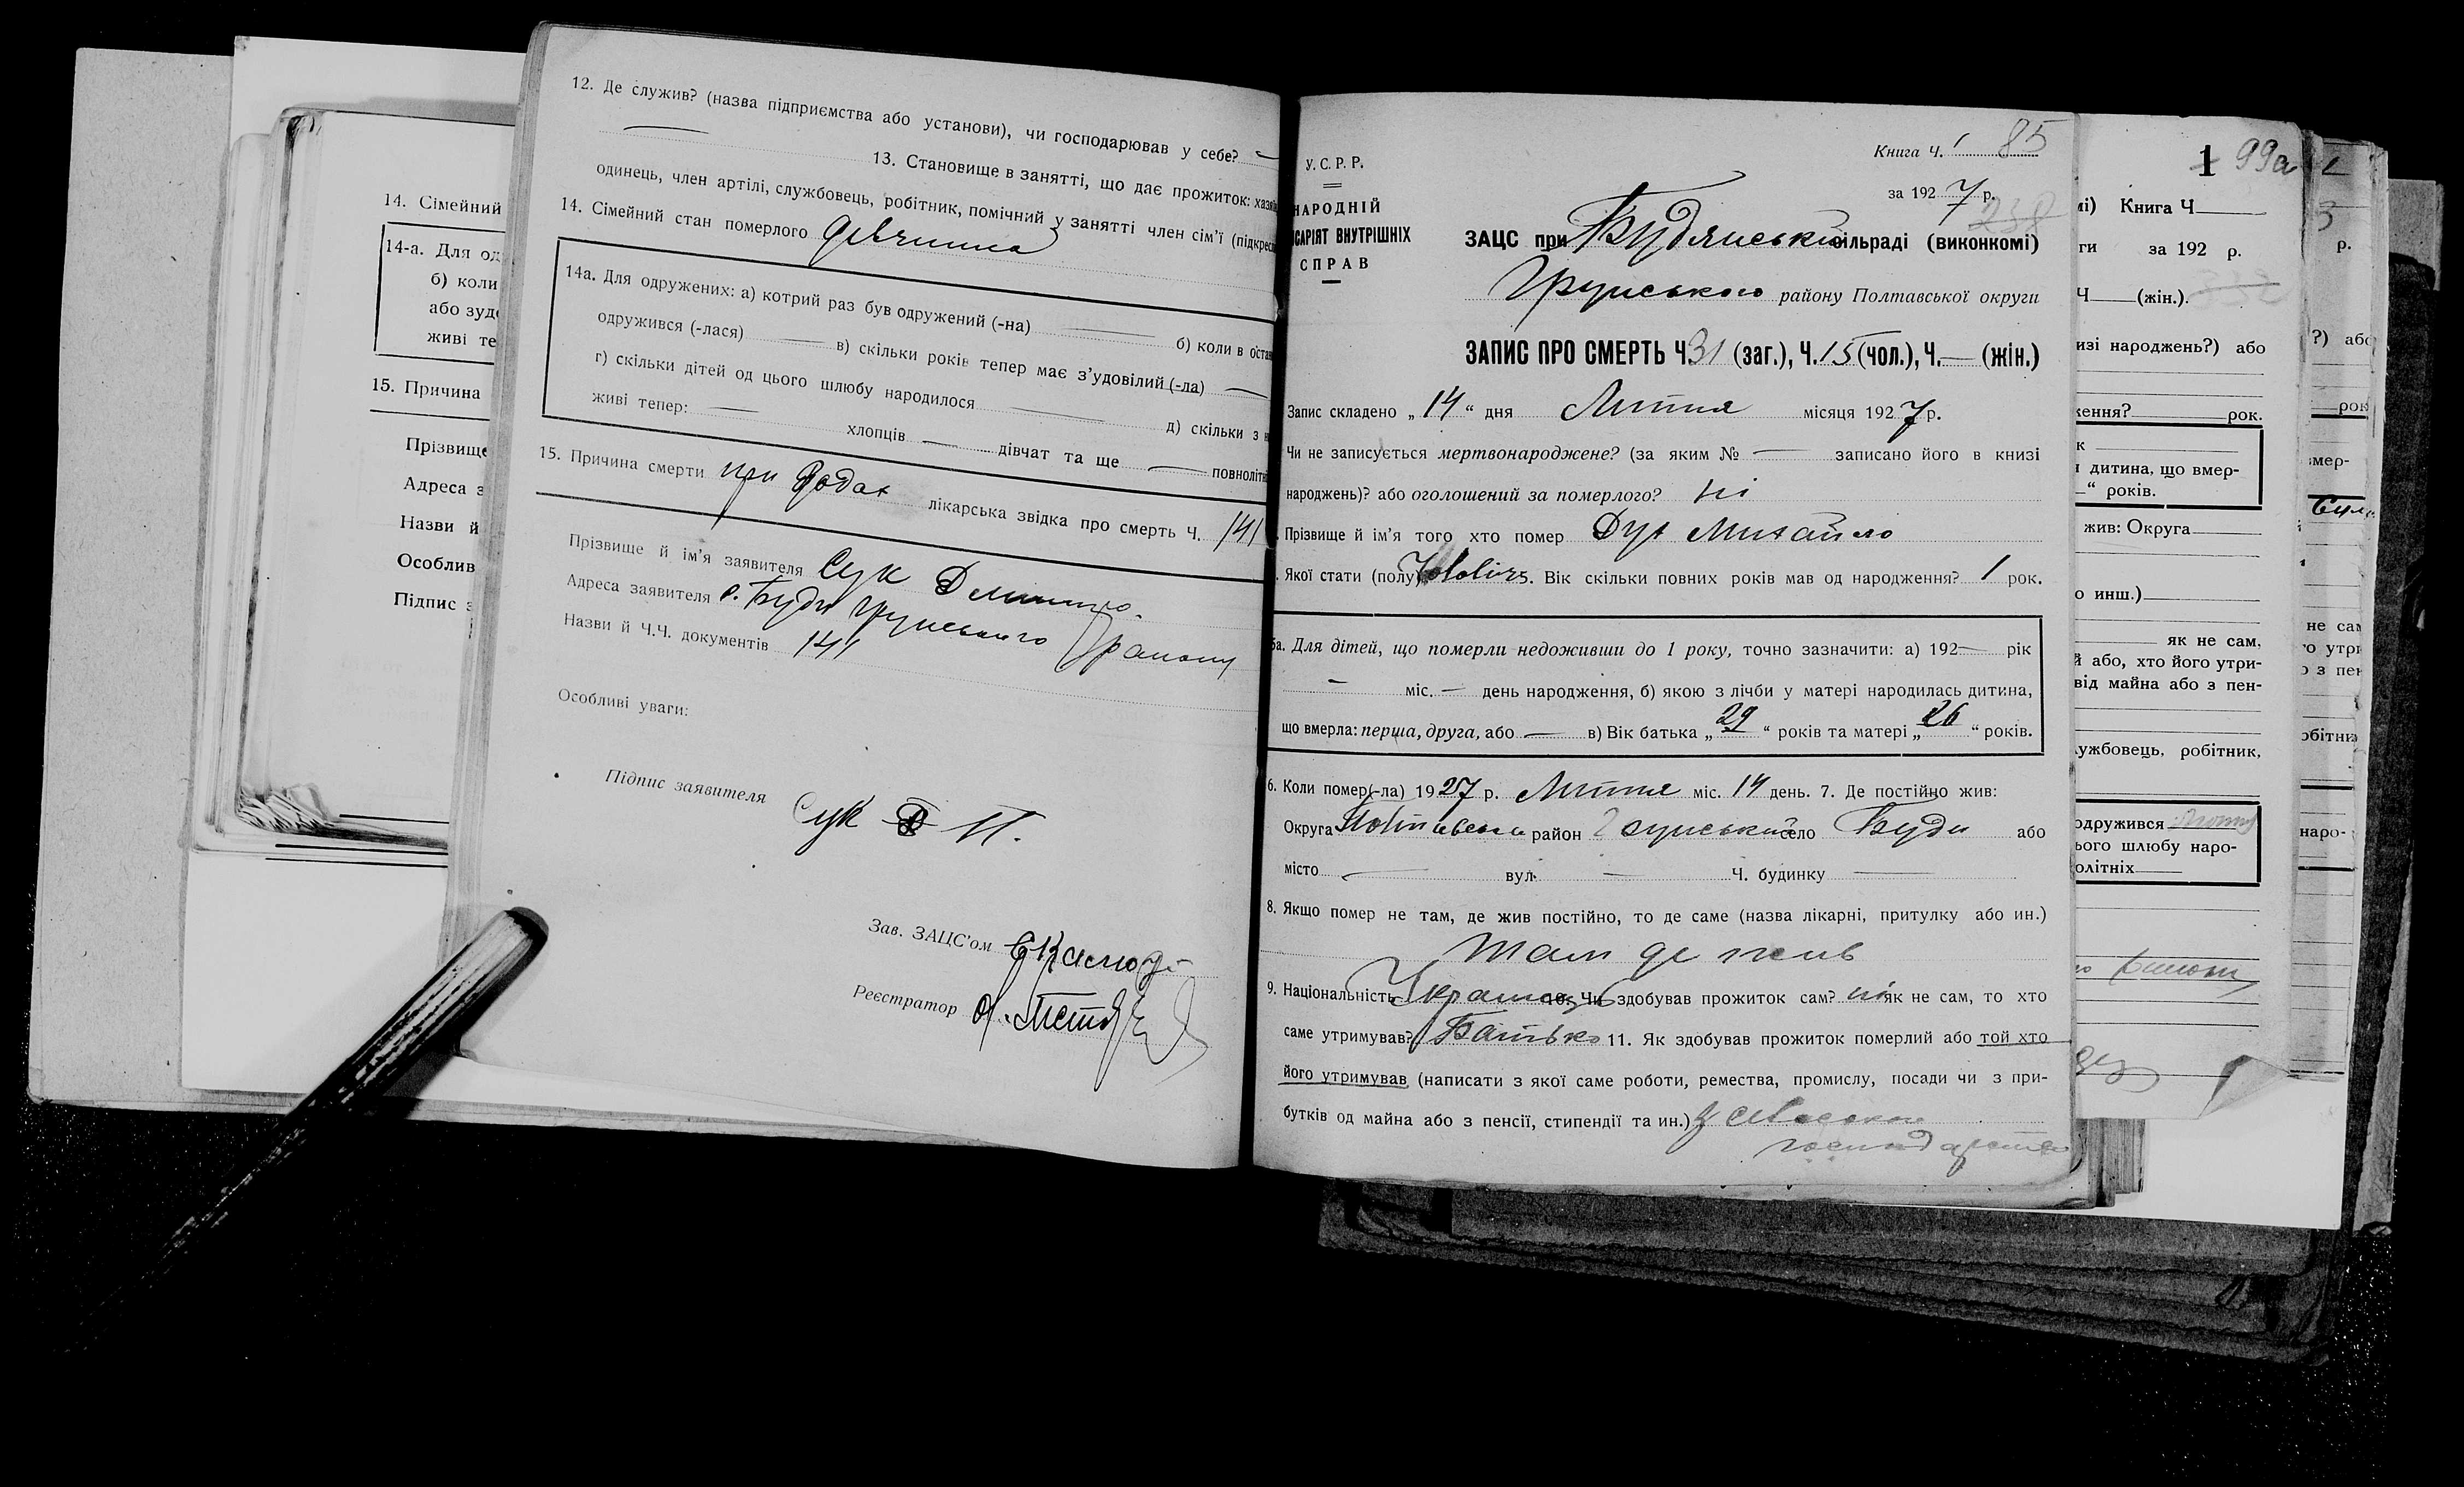 14. Сімейний
14-а. Для од
б) коли
або зудо
живі те
15. Причина
Прізвище
Адреса з
Назви й
Особлив
Підпис з
12. Де служив? (назва підприємства або установи), чи господарював у себе? —
— 13. Становище в занятті, що дає прожиток: хазяїн
одинець, член артілі, службовець, робітник, помічний у занятті член сім'ї (підкрес
14. Сімейний стан померлого дівчина
14а. Для одружених: а) котрий раз був одружений (-на) — б) коли в остан
одружився (-лася) — в) скільки років тепер має з'удовілий (-ла) —
г) скільки дітей од цього шлюбу народилося — д) скільки з н
живі тепер: — хлопців — дівчат та ще — повноліт
15. Причина смерти при родах лікарська звідка про смерть Ч. 141
Прізвище й ім'я заявителя Сук Дмитро
Адреса заявителя с. Буди Грунського району
Назви й Ч.Ч. документів 141
Особливі уваги:
Підпис заявителя Сук Д П.
Зав. ЗАЦС'ом
Реєстратор
Книга Ч. 1 85
У. С. Р. Р.
за 1927 р.
238
НАРОДНІЙ
ІСАРІЯТ ВНУТРІШНІХ
СПРАВ
ЗАЦС при Будянській сільраді (виконкомі)
Грунського району Полтавської округи
ЗАПИС ПРО СМЕРТЬ Ч. 31 (заг.), Ч. 15 (чол.), Ч. — (жін.)
Запис складено „14" дня Липня місяця 1927 р.
Чи не записується мертвонароджене? (за яким № — записано його в книзі
народжень)? або оголошений за померлого? ні
Прізвище й ім'я того хто помер Дух Михайло
Якої стати (полу) 5. Вік скільки повних років мав од народження? 1 рок.
5а. Для дітей, що померли недоживши до 1 року, точно зазначити: а) 192— рік
— міс. — день народження, б) якою з лічби у матері народилась дитина,
що вмерла: перша, друга, або — в) Вік батька „29" років та матері „26" років.
6. Коли помер(-ла) 1927 р. Липня міс. 14 день. 7. Де постійно жив:
Округа Полтавська район Грунський село Буди або
місто — вул. — Ч. будинку —
8. Якщо помер не там, де жив постійно, то де саме (назва лікарні, притулку або ин.)
Там де жив
9. Національність Українець 10. Чи здобував прожиток сам? ні як не сам, то хто
саме утримував? Батько 11. Як здобував прожиток померлий або той хто
його утримував (написати з якої саме роботи, ремества, промислу, посади чи з при-
бутків од майна або з пенсії, стипендії та ин.) З сільського
господарства
1 99а
мі) Книга Ч
ги за 192 р.
Ч (жін.).
изі народжень?) або
ження? рок.
к
и дитина, що вмер-
" років.
жив: Округа
о инш.)
як не сам,
й або, хто його утри-
від майна або з пен-
ужбовець, робітник,
одружився
ього шлюбу наро-
олітніх
р.
?) або
рок
вмер-
не сам
го утри
о з пен
обітни
наро-